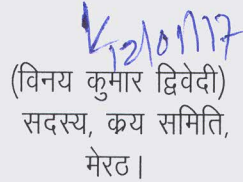 12/01/17
(विनय कुमार द्विवेदी)
सदस्य, क्रय समिति,
मेरठ।